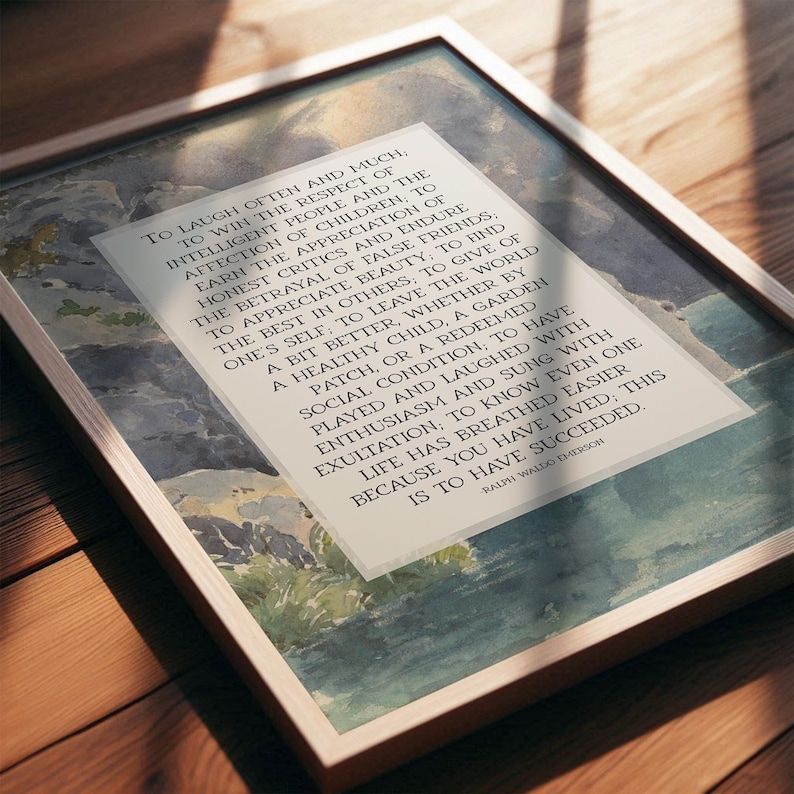 To laugh often and much;
to win the respect of
intelligent people and the
affection of children; to
earn the appreciation of
honest critics and endure
the betrayal of false friends;
to appreciate beauty; to find
the best in others; to give of
one's self; to leave the world
a bit better, whether by
a healthy child, a garden
patch, or a redeemed
social condition; to have
played and laughed with
enthusiasm and sung with
exultation; to know even one
life has breathed easier
because you have lived; this
is to have succeeded.
-Ralph Waldo Emerson